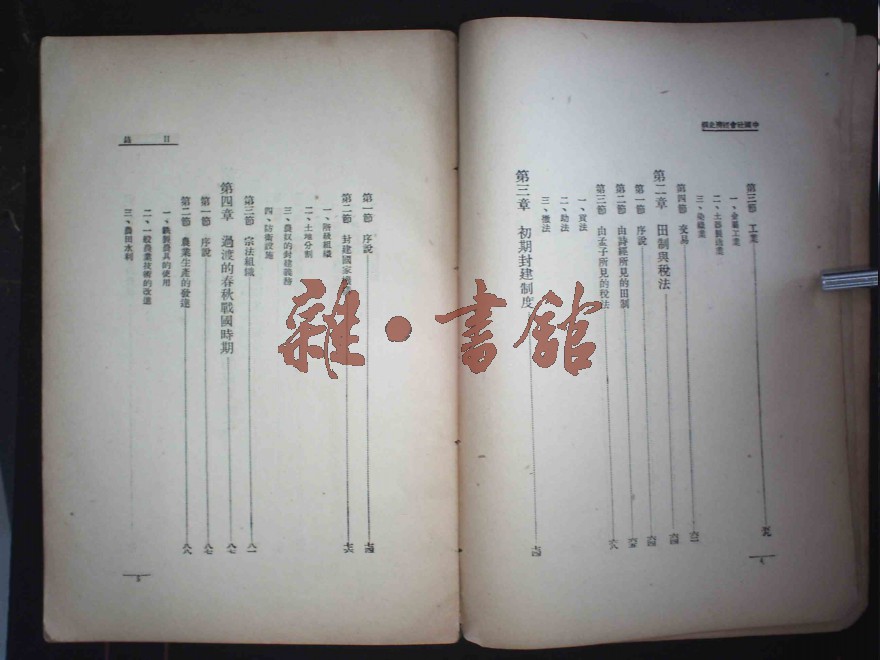 中國社會經濟史綱
第三節 工業 五九
一、金屬工業
二、土器製造業
三、染織業
第四節 交易 六二
第二章 田制與稅法 六四
第一節 序說 六四
第二節 由詩經所見的田制 六五
第三節 由孟子所見的稅法 六八
一、貢法
二、助法
三、徹法
第三章 初期封建制度 七四
4
目錄
第一節 序說 七四
第二節 封建國家 七六
一、階級組織
二、土地分割
三、農奴的封建義務
四、防衛設施
第三節 宗法組織 八一
第四章 過渡的春秋戰國時期 八七
第一節 序說 八七
第二節 農業生產的發達 八八
一、鐵製農具的使用
二、一般農業技術的改進
三、農田水利
5
雜·書館